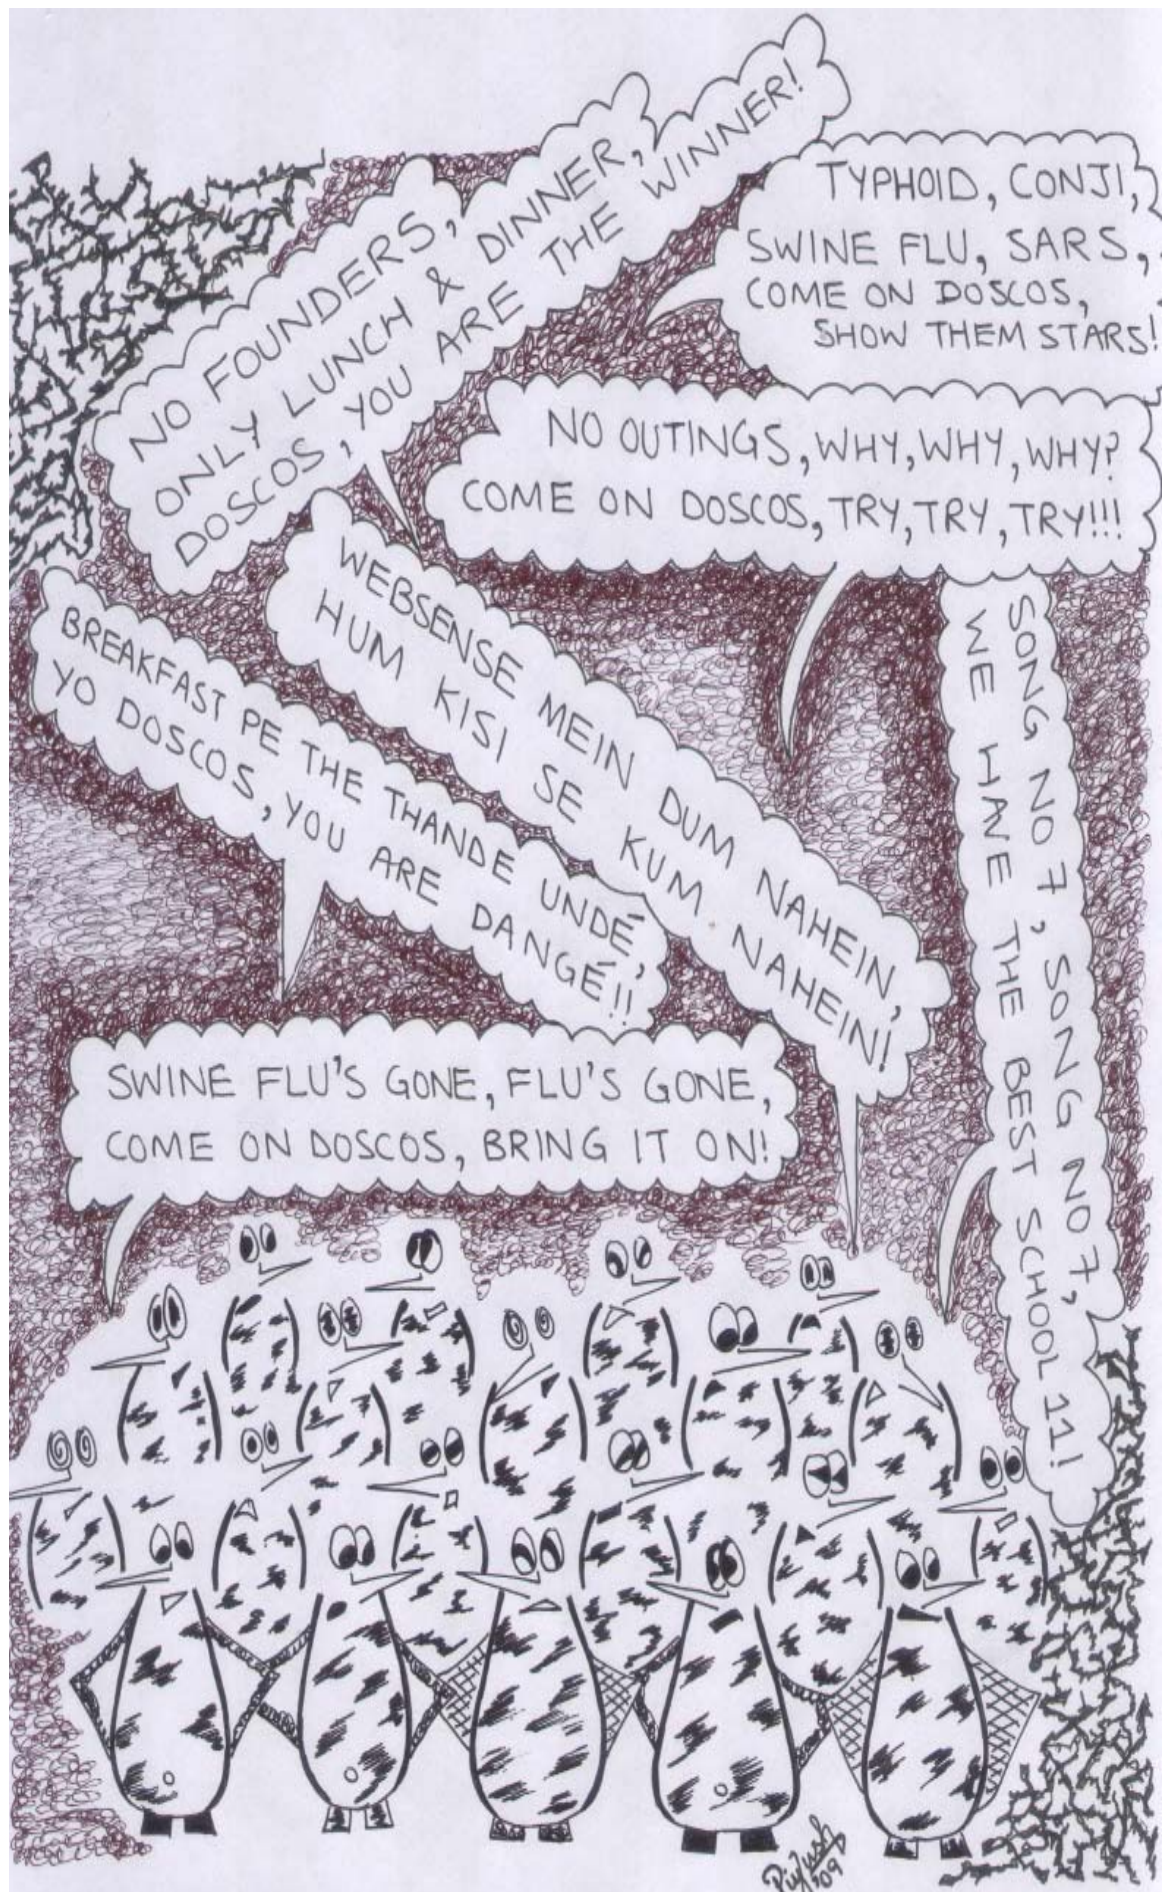 NO FOUNDERS,
ONLY LUNCH & DINNER,
DOSCOS, YOU ARE THE WINNER!
TYPHOID, CONJI,
SWINE FLU, SARS,
COME ON DOSCOS,
SHOW THEM STARS!
NO OUTINGS, WHY, WHY, WHY?
COME ON DOSCOS, TRY, TRY, TRY!!!
WEBSENSE MEIN DUM NAHEIN,
HUM KISI SE KUM NAHEIN!
BREAKFAST PE THE THANDE UNDÉ,
YO DOSCOS, YOU ARE DANGÉ!!
SONG NO 7, SONG NO 7,
WE HAVE THE BEST SCHOOL 11!
SWINE FLU'S GONE, FLU'S GONE,
COME ON DOSCOS, BRING IT ON!
Piyush
'09